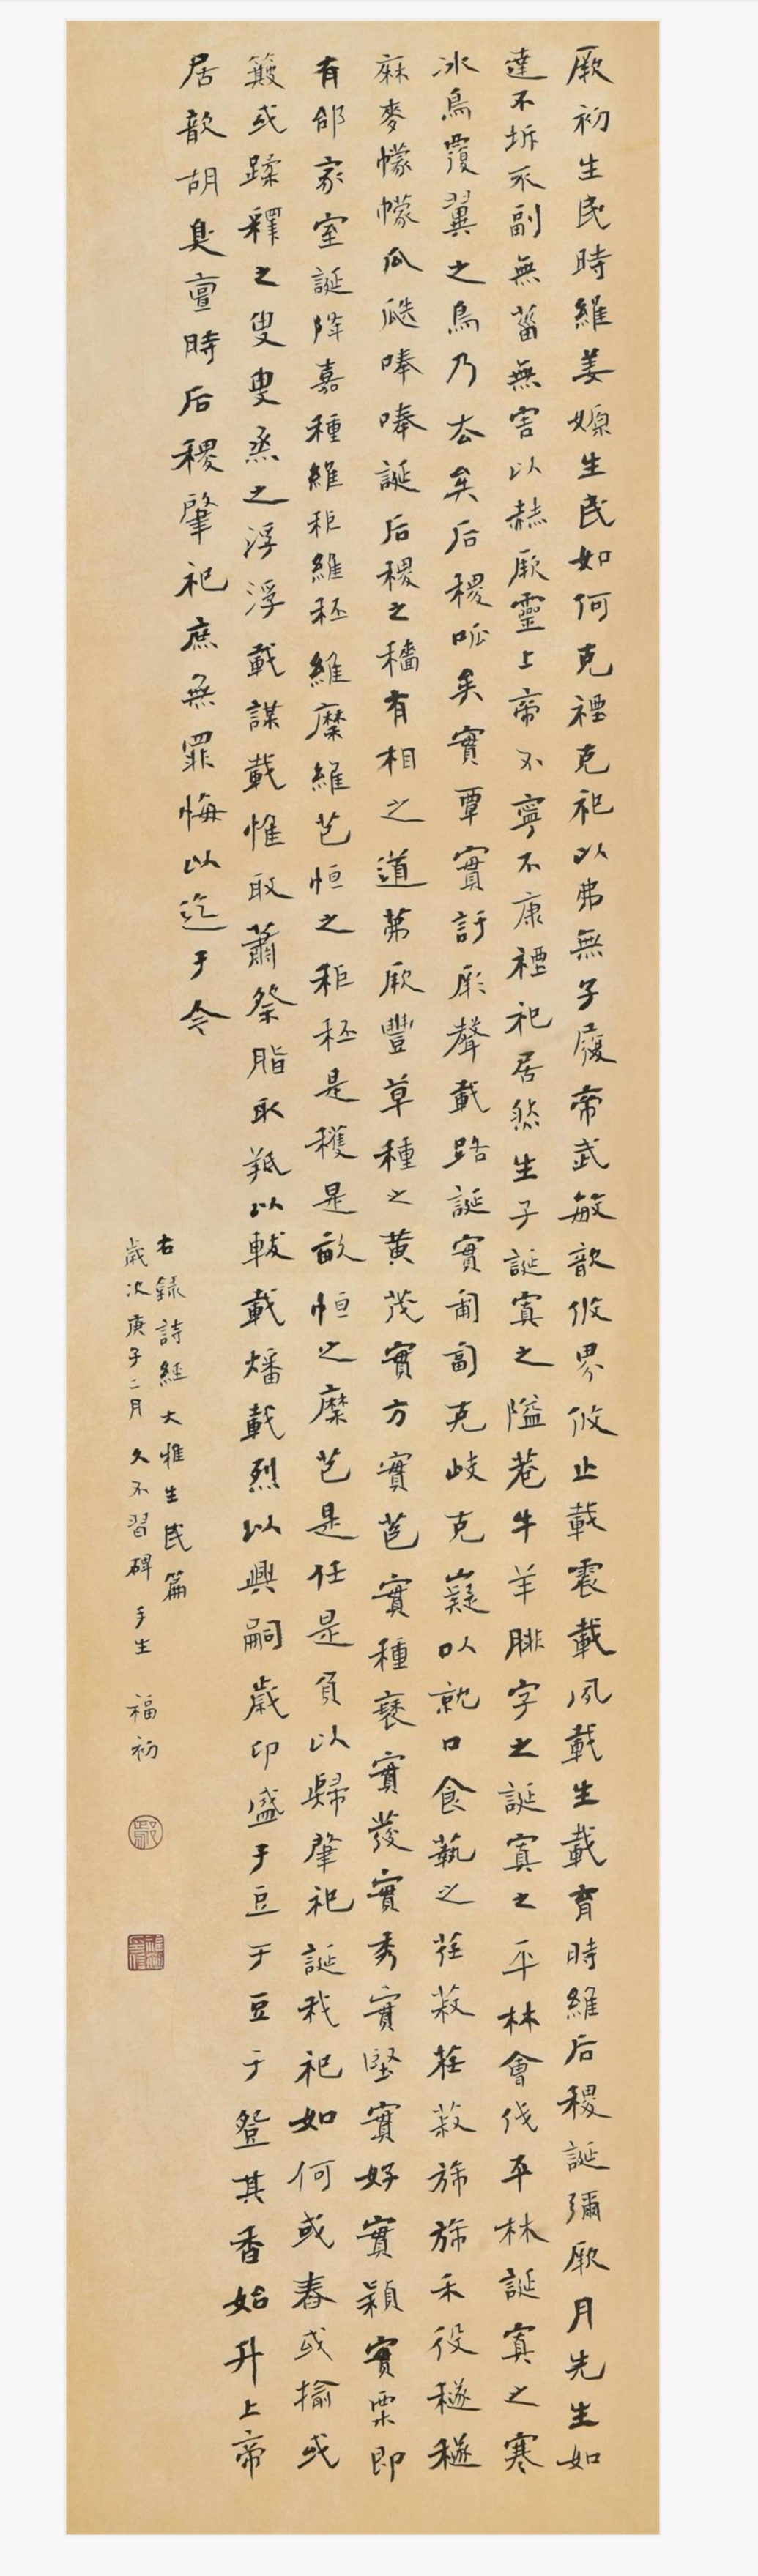 厥初生民時維姜嫄生民如何克禋克祀以弗無子履帝武敏歆攸界攸止載震載夙載生載育時維后稷誕彌厥月先生如
達不坼不副無菑無害以赫厥靈上帝不寧不康禋祀居然生子誕寘之隘巷牛羊腓字之誕寘之平林會伐平林誕寘之寒
冰鳥覆翼之鳥乃去矣后稷呱矣實覃實訏厥聲載路誕實匍匐克岐克嶷以就口食蓺之荏菽荏菽旆旆禾役穟穟
麻麥幪幪瓜瓞唪唪誕后稷之穡有相之道茀厥豐草種之黄茂實方實苞實種實褎實發實秀實堅實好實穎實栗即
有邰家室誕降嘉種維秬維秠維穈維芑恒之秬秠是穫是畝恒之穈芑是任是負以歸肇祀誕我祀如何或舂或揄或
簸或蹂釋之叟叟烝之浮浮載謀載惟取蕭祭脂取羝以軷載燔載烈以興嗣歲卬盛于豆于豆于登其香始升上帝
居歆胡臭亶時后稷肇祀庶無罪悔以迄于今
右錄詩經大雅生民篇
歲次庚子二月久不習碑手生 福初